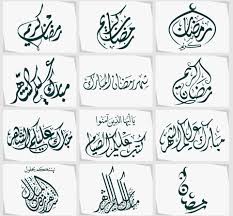 رمضان كريم
رمضان كريم
رمضان كريم
رمضان
شهر رمضان المبارك
مبارك عليكم الشهر
مبارك عليكم الشهر
يا أيها الذين آمنوا
كتب عليكم الصيام
مبارك عليكم الشهر
رمضان
مبارك عليكم الشهر
نهنئكم بحلول
شهر رمضان المبارك